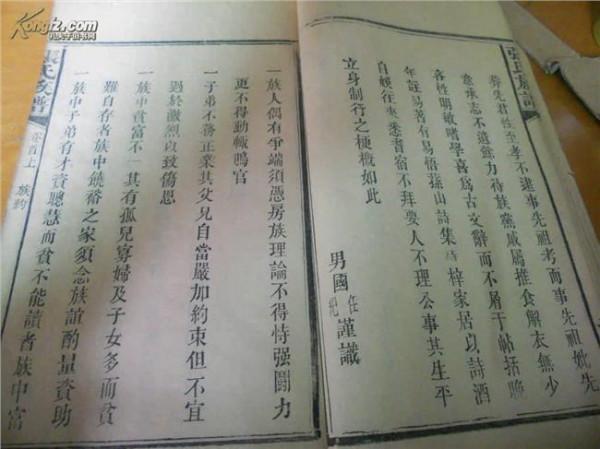 張氏族譜
先君性至孝不逮事先祖考而事先祖妣先
意承志不遺餘力待族黨戚屬推食解衣無少
吝性明敏嗜學喜為古文辭而不屑于帖括晚
年註易著有易悟蓀山詩集待梓家居以詩酒
自娛往來悉耆宿不拜要人不理公事其生平
立身制行之梗概如此
男國任
紀
謹識
張氏族譜
卷首上
族約
一族人偶有爭端須憑房族理論不得恃强鬬力
更不得動輒鳴官
一子弟不務正業其父兄自當嚴加約束但不宜
過於激烈以致傷恩
一族中貧富不一其有孤兒寡婦及子女多而貧
難自存者族中饒裕之家須念族誼酌量資助
一族中子弟有才資聰慧而貧不能讀者族中富
Kongfz.com
孔夫子旧书网